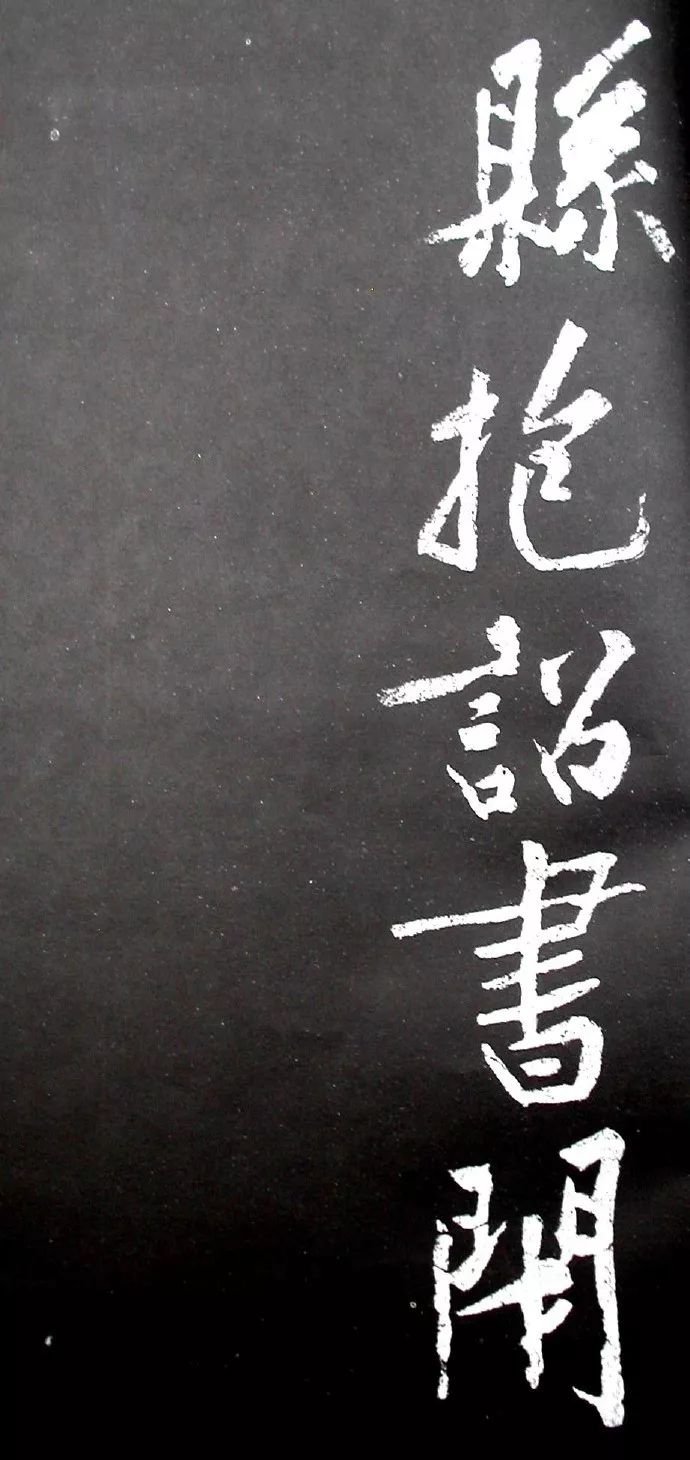 縣抱詔書閉